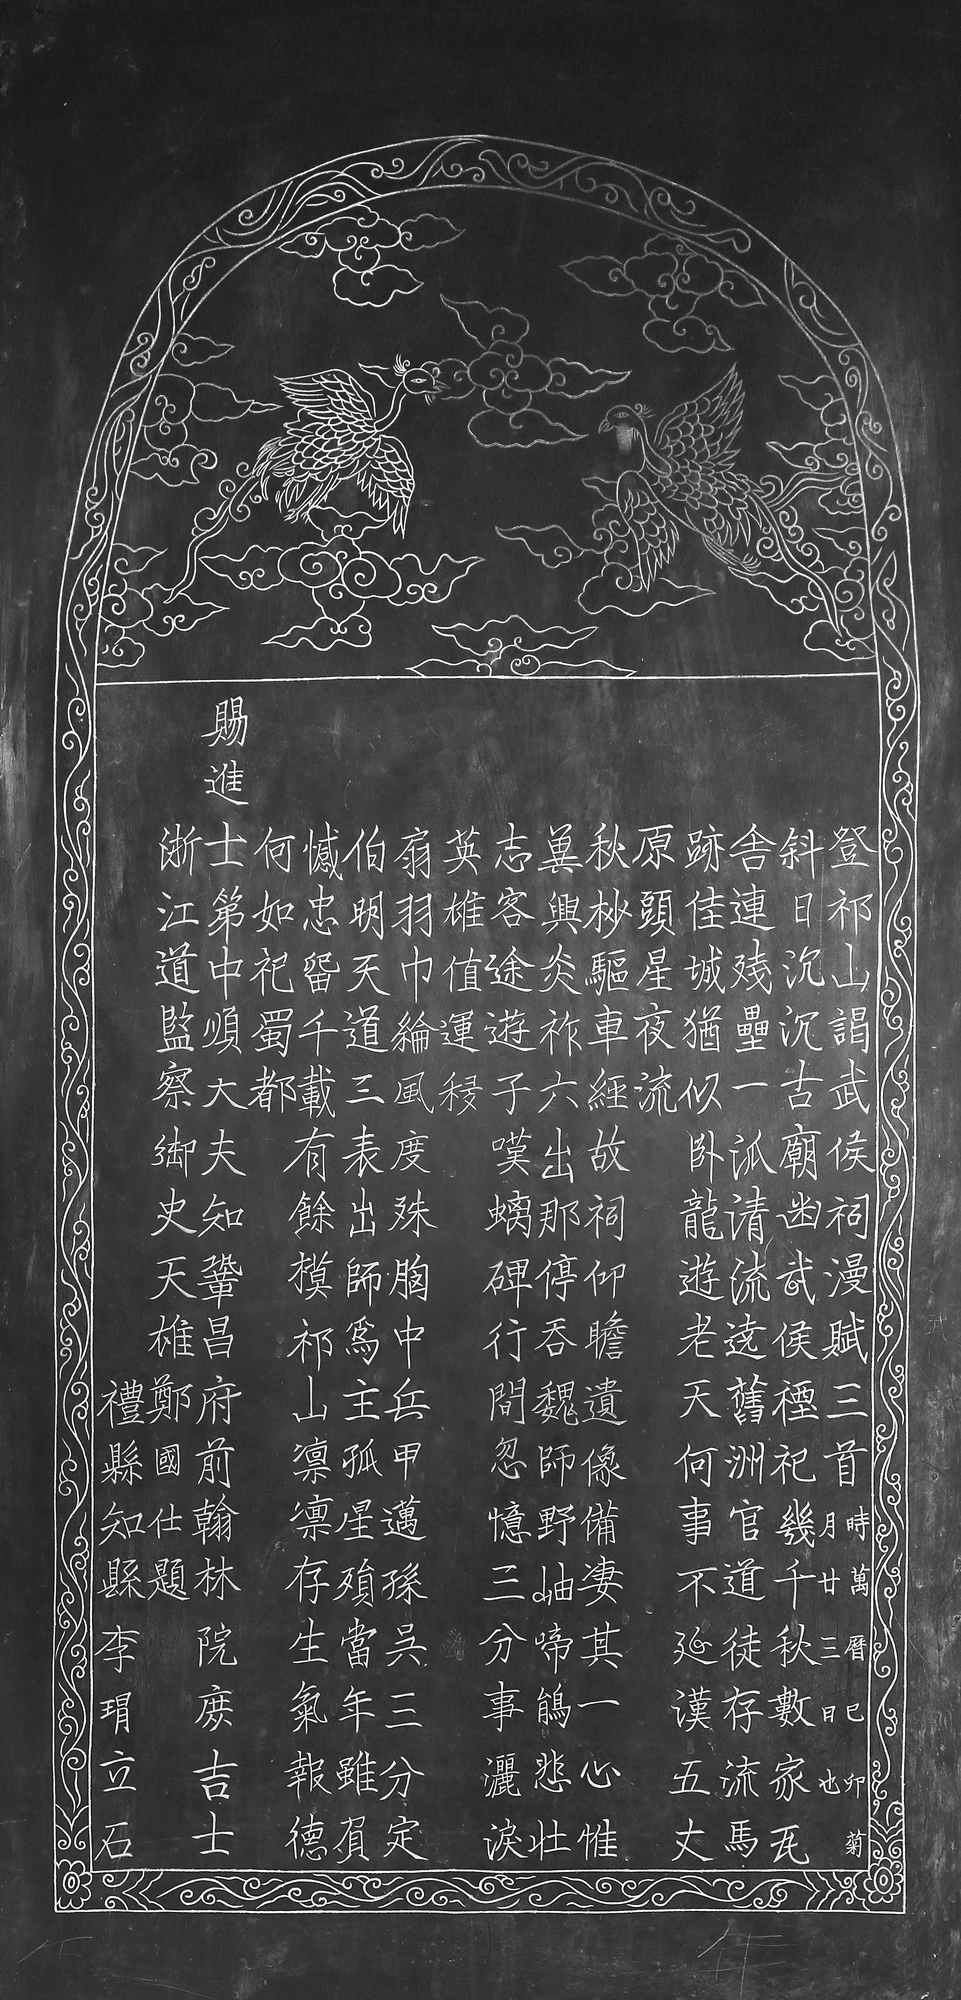 登祁山謁武侯祠漫賦三首時萬曆己卯菊月廿三日也
斜日沉沉古廟幽武侯禋祀幾千秋數家瓦
舍連殘壘一泒清流遶舊洲官道徒存流馬
跡佳城猶似臥龍遊老天何事不延漢五丈
原頭星夜流
秋杪驅車經故祠仰瞻遺像備淒其一心惟
冀興炎祚六出那停吞魏師野岫啼鵑悲壯
志客途遊子嘆螭碑行間忽憶三分事灑淚
英雄值運移
扇羽巾綸風度殊胸中兵甲邁孫吳三分定
伯明天道三表出師爲主孤星殞當年雖負
憾忠畱千載有餘模祁山凛凛存生氣報德
何如祀蜀都
賜進士第中順大夫知鞏昌府前翰林院庶吉士
浙江道監察御史天雄鄭國仕題
禮縣知縣李琄立石